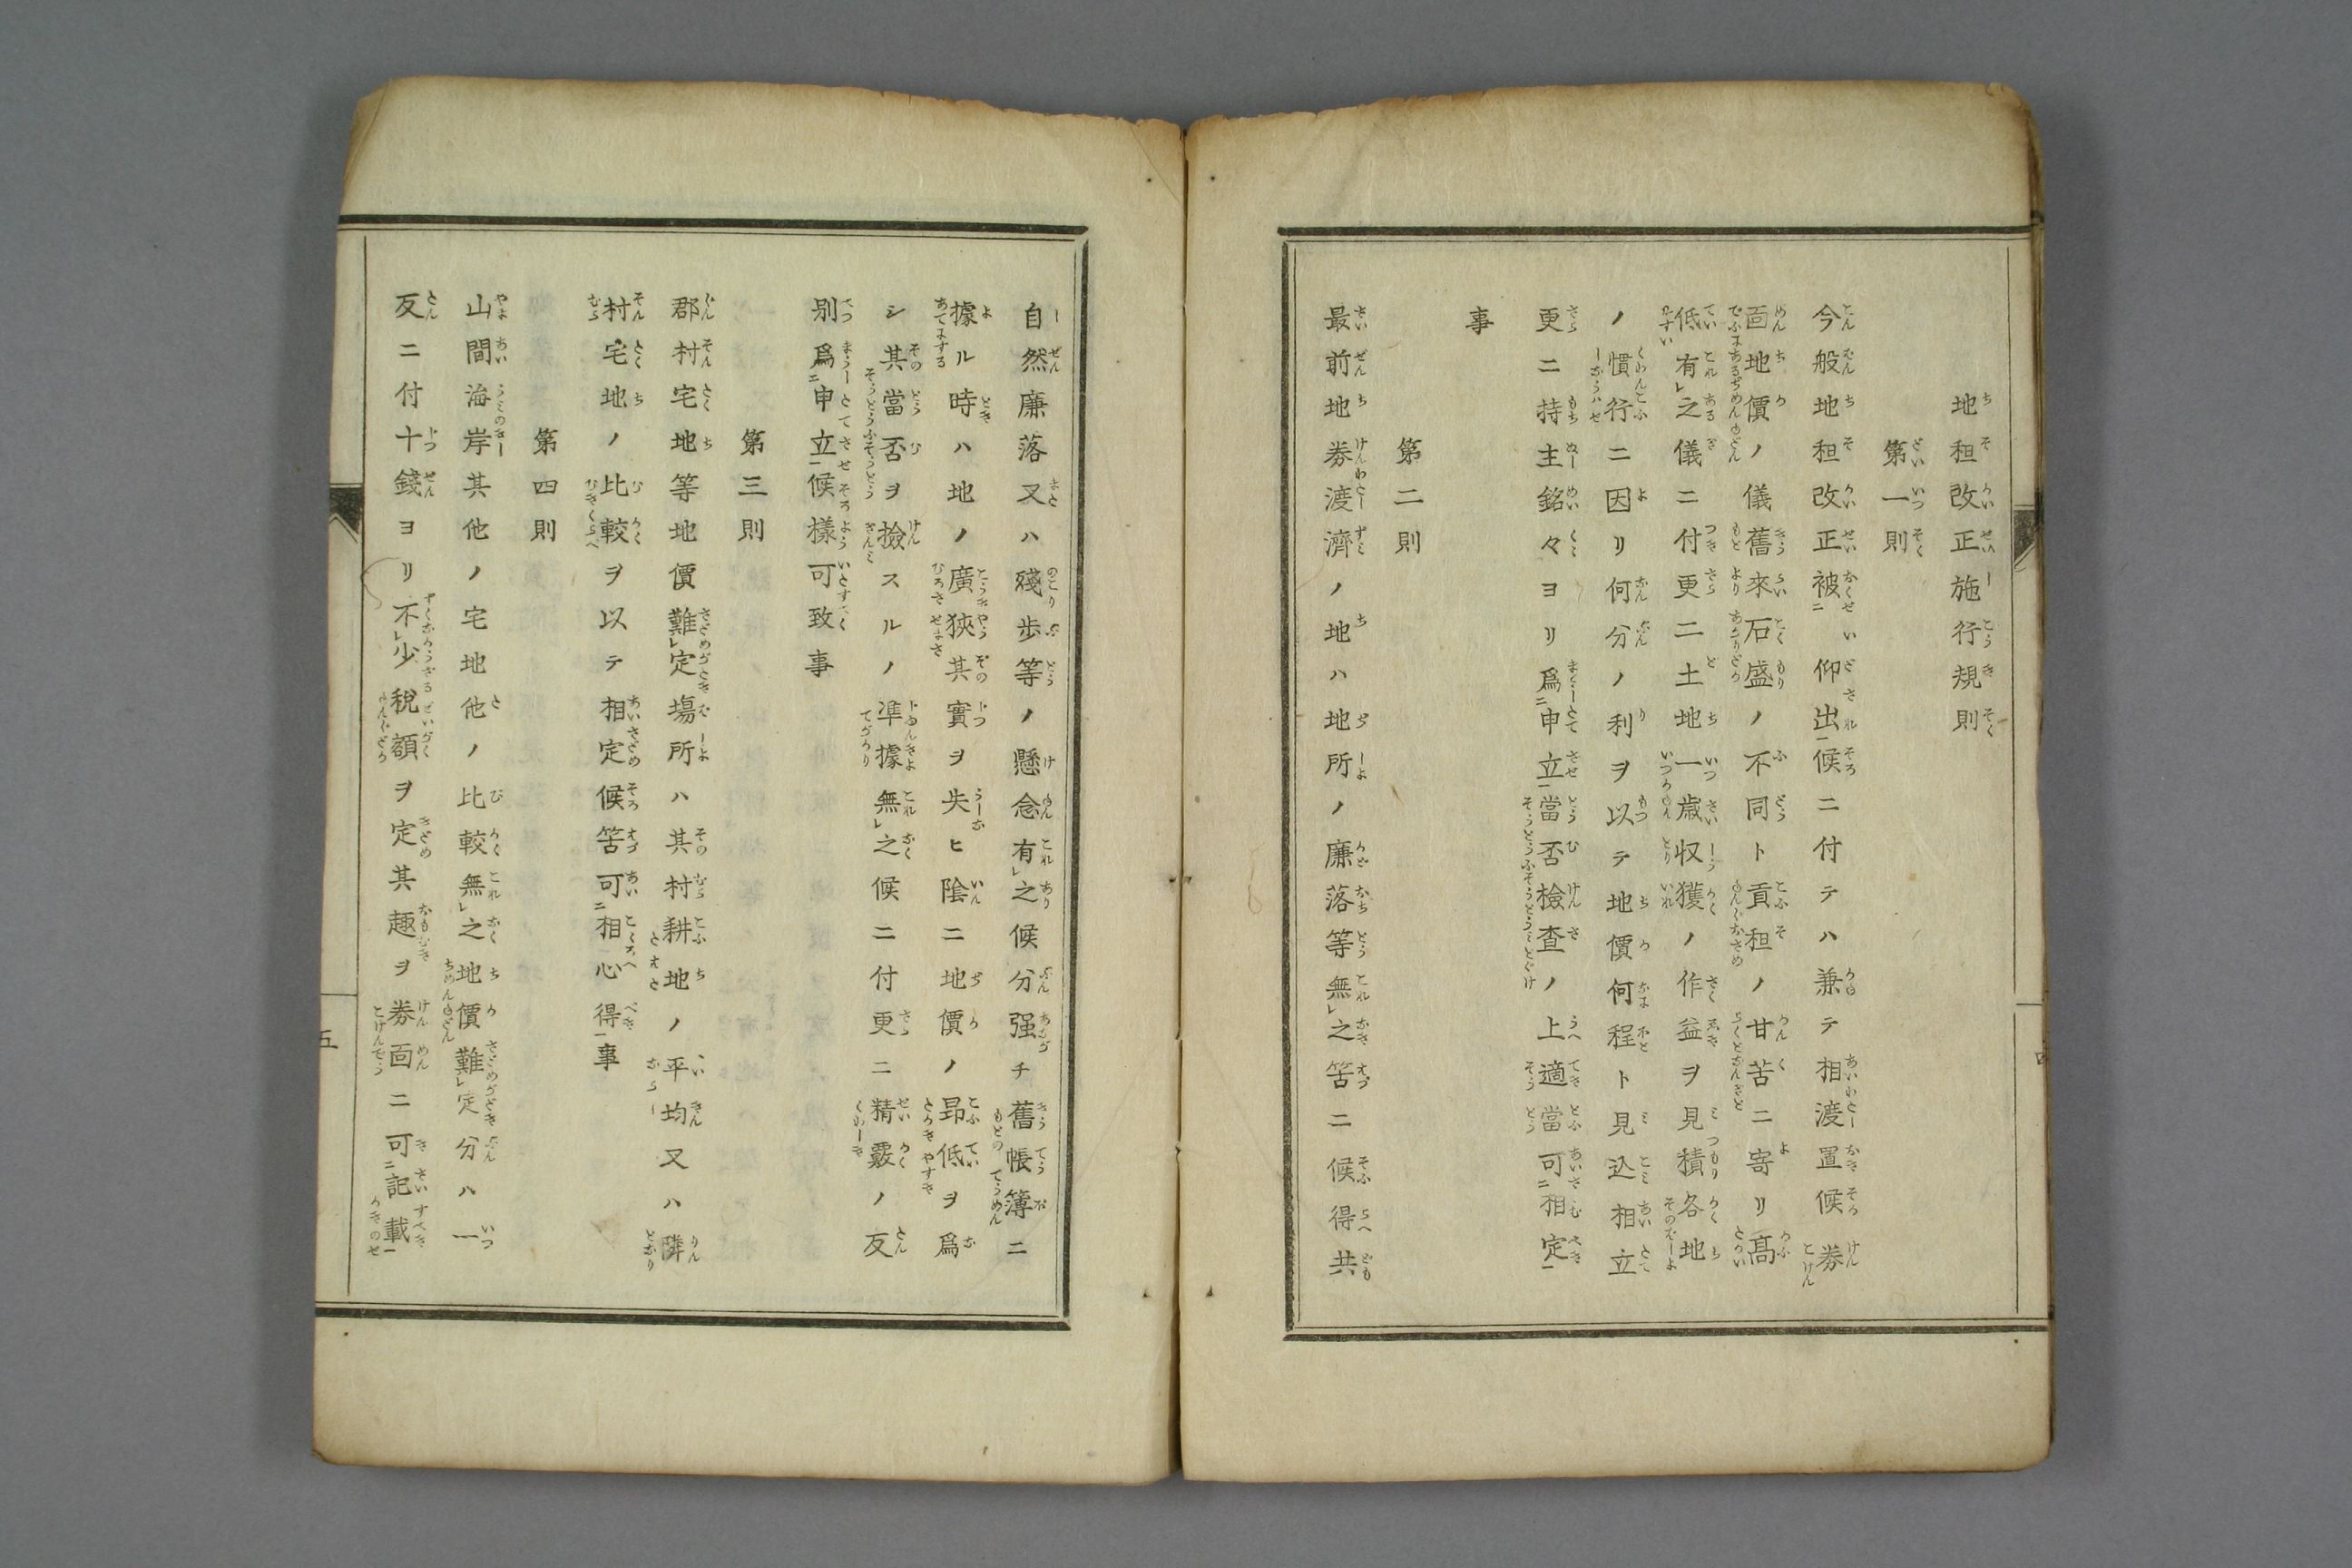 地租改正施行規則
第一則
今般地租改正被仰出候ニ付テハ兼テ相渡置候券
面地價ノ儀舊來石盛ノ不同ト貢租ノ甘苦ニ寄リ髙
低有之儀ニ付更ニ土地一歳収獲ノ作益ヲ見積各地
ノ慣行ニ因リ何分ノ利ヲ以テ地價何程ト見込相立
更ニ持主銘々ヨリ爲申立當否檢査ノ上適當可相定
事
第二則
最前地券渡濟ノ地ハ地所ノ廉落等無之筈ニ候得共
自然廉落又ハ殘歩等ノ懸念有之候分强チ舊帳簿ニ
據ル時ハ地ノ廣狹其實ヲ失ヒ隂ニ地價ノ昂低ヲ爲
シ其當否ヲ撿スルノ凖據無之候ニ付更ニ精覈ノ反
別爲申立候樣可致事
第三則
郡村宅地等地價難定塲所ハ其村耕地ノ平均又ハ隣
村宅地ノ比較ヲ以テ相定候筈可相心得事
第四則
山間海岸其他ノ宅地他ノ比較無之地價難定分ハ一
反ニ付十錢ヨリ不少税額ヲ定其趣ヲ券面ニ可記載
五